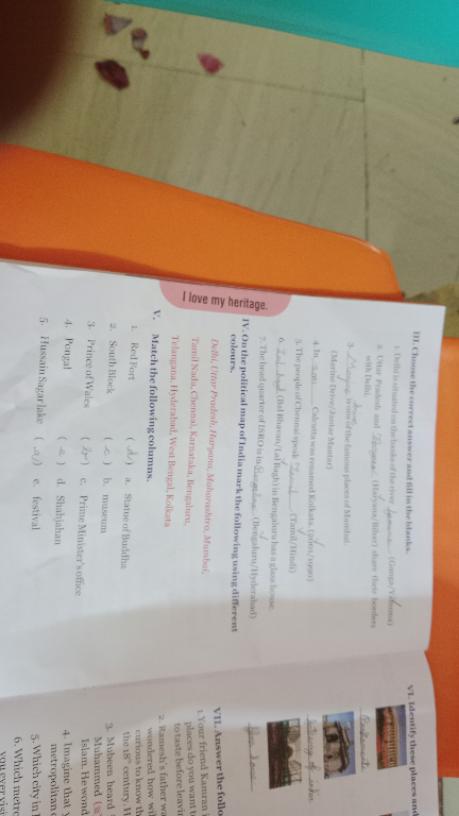 I love my heritage.
III. Choose the correct answer and fill in the blanks.
1. Delhi is situated on the banks of the river (Ganga/Yamuna)
2. Uttar Pradesh and Haryana (Haryana/Bihar) share their borders
with Delhi.
3. is one of the famous places of Mumbai.
(Marine Drive/Juntar Mantar)
4. In Calcutta was renamed Kolkata.
5. The people of Chennai speak Tamil (Tamil/Hindi)
6. Lal bagh (Bal Bhavan/Lal Bagh) in Bengaluru has a glass house.
7. The head quarter of ISRO is in Bengaluru (Bengaluru/Hyderabad)
IV. On the political map of India mark the following using different
colours.
Delhi, Uttar Pradesh, Haryana, Maharashtra, Mumbai,
Tamil Nadu, Chennai, Karnataka, Bengaluru,
Telangana, Hyderabad, West Bengal, Kolkata
V. Match the following columns.
1. Red Fort (d) a. Statue of Buddha
2. South Block (c) b. museum
3. Prince of Wales (b) c. Prime Minister's office
4. Pongal (e) d. Shahjahan
5. Hussain Sagar lake (a) e. festival
VI. Identify these places and
VII. Answer the follo
1. Your friend Kamran i
places do you want t
to taste before leavi
2. Ramesh's father wa
wondered how wi
curious to know th
the 18th century. H
3. Mubeen heard
Muhammed
Islam. He wond
4. Imagine that y
metropolitan c
5. Which city in I
6. Which metro
you ever visi